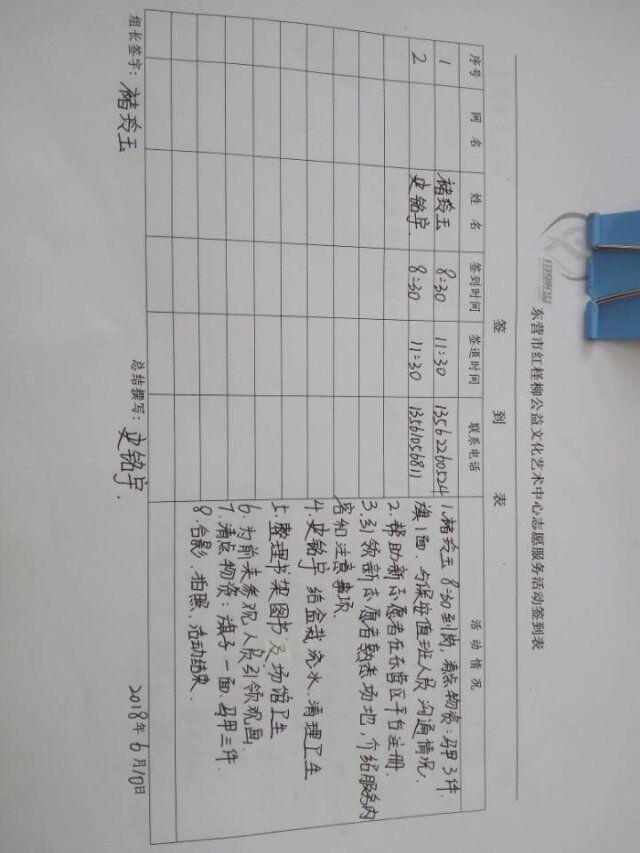 东营市红柽柳公益文化艺术中心志愿服务活动签到表
签 到 表
序号 网 名 姓 名 签到时间 签退时间 联系电话 活 动 情 况
1 褚玲玉 8:30 11:30 13562260524
2 史铭宇. 8:30 11:30 13561056811
1.褚玲玉 8:30到岗,清点物资:马甲3件.
旗1面.与保安值班人员沟通情况.
2.帮助新志愿者在东营区平台注册.
3.引领新志愿者熟悉场地,介绍服务内
容和注意事项.
4.史铭宇 给盆栽浇水.清理卫生
5.整理书架图书及场馆卫生
6.为前来参观人员引领观画.
7.清点物资:旗子一面.马甲三件.
8.合影.拍照.活动结束.
组长签字:褚玲玉 总结撰写:史铭宇. 2018年6月10日